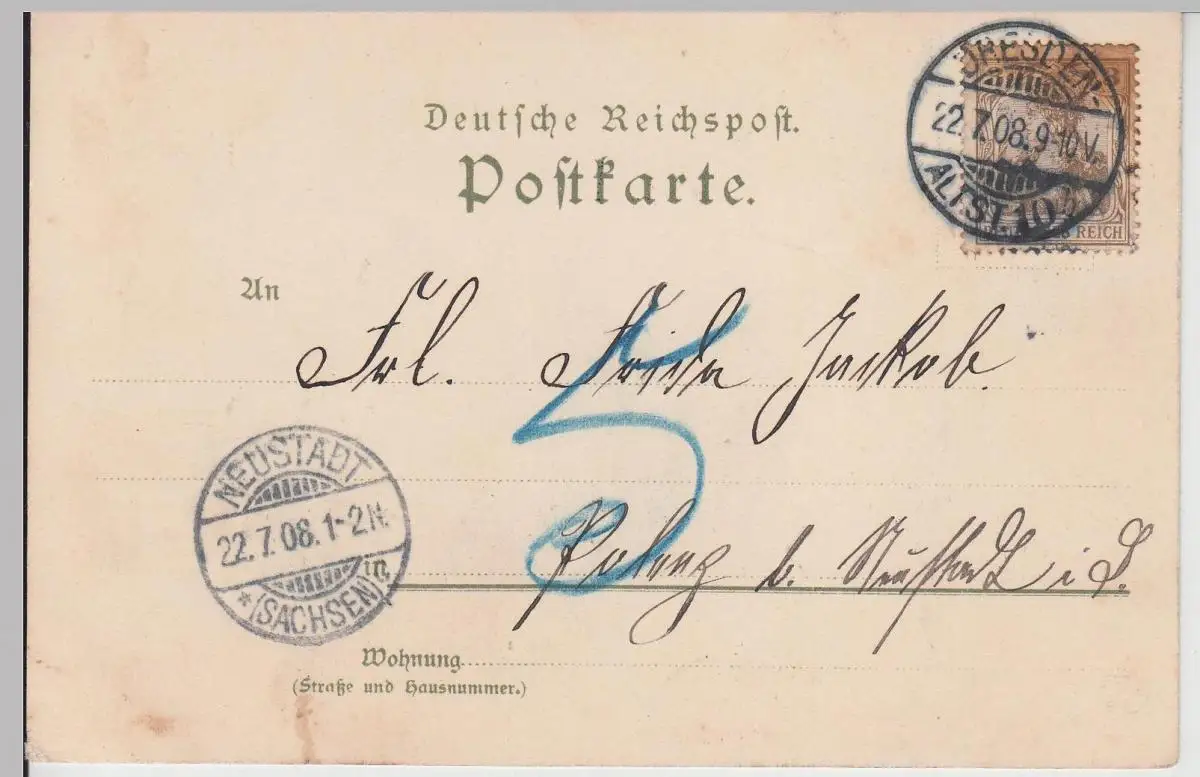 DRESDEN-
22.7.08.9-10V.
ALTST. 10
3
REICH
Deutsche Reichspost.
Postkarte.
An
Frl. Frida Jackob.
5
NEUSTADT
22.7.08.1-2N.
in
* (SACHSEN)
Polenz b. Neustadt i S.
Wohnung
(Straße und Hausnummer.)